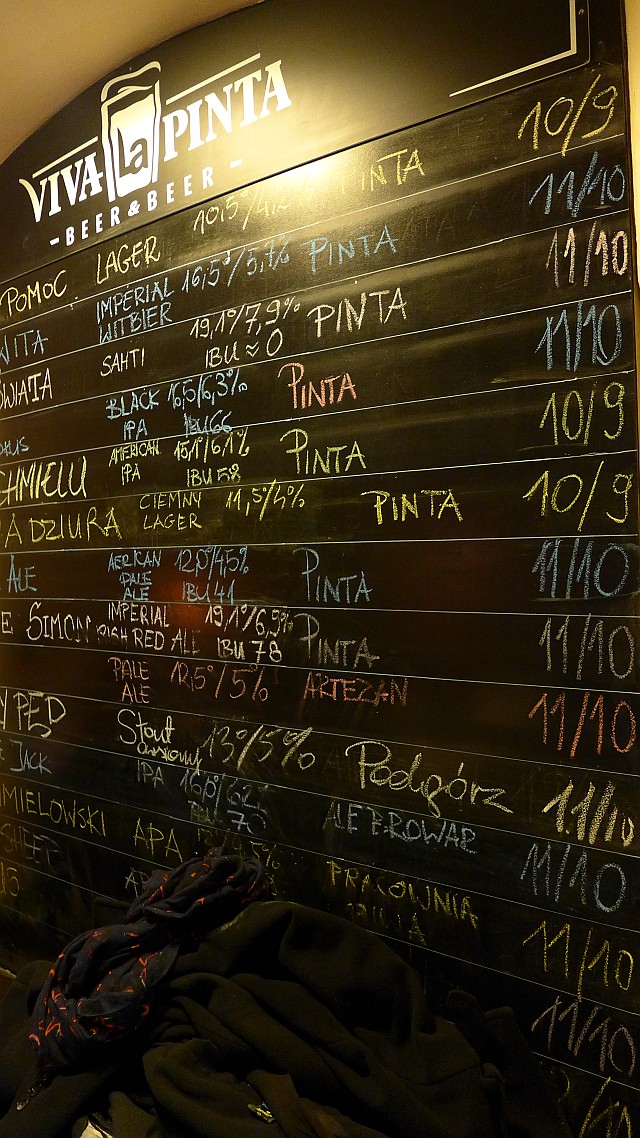 VIVA La PINTA
- BEER & BEER -
POMOC LAGER 10,5°/4,2% PINTA 10/9
WITA IMPERIAL WITBIER 16,5°/5,7% PINTA 11/10
ŚWIATA SAHTI 19,1°/7,9% IBU ≈ 0 PINTA 11/10
BLACK IPA 16,5/6,3% IBU 66 PINTA 11/10
CHMIELU AMERICAN IPA 15,1°/6,1% IBU 58 PINTA 10/9
A DZIURA CIEMNY LAGER 11,5°/4% PINTA 10/9
ALE PALE ALE 12,0°/4,5% IBU 41 PINTA 11/10
E SIMON IMPERIAL IRISH RED ALE 19,1°/6,9% IBU 78 PINTA 11/10
PALE ALE 12,5°/5% ARTEZAN 11/10
Y PĘD Stout owsiany 13°/5% Podgórz 11/10
JACK IPA 70 ALEBROWAR 11/10
MIELOWSKI APA PRACOWNIA PIWA 11/10
11/10